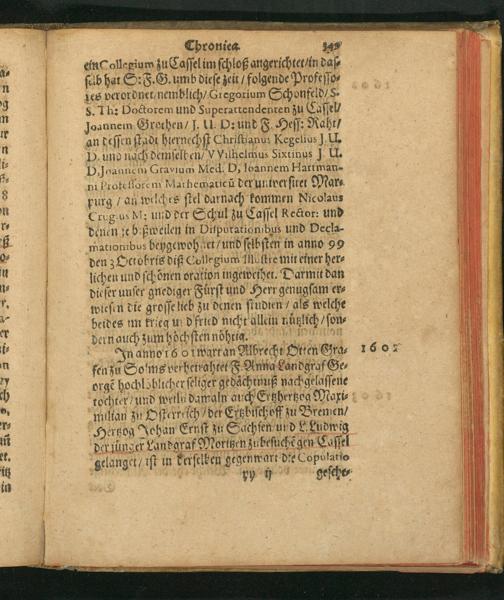 Chronica 342
ein Collegium zu Cassel im schloß angerichtet/in das-
selb hat S: F. G. umb diese zeit/folgende Professo-
res verordnet/nemblich/Gregorium Schonfeld/S.
S. Th: Doctorem und Superattendenten zu Cassel/
Joannem Grothen/ J. U. D: und F. Hess: Raht/
an dessen stadt hiernechst Christianus Kegelius J. U.
D. und nach demselben/ VVilhelmus Sixtinus J. U.
D. Joannem Gravium Med. D, Joannem Hartman-
ni Professorem Mathematicũ der universitet Mar-
purg/an welches stel darnach kommen Nicolaus
Crugius M: und der Schul zu Cassel Rector: und
denen je bißweilen in Disputationibus und Decla-
mationibus beygewohnet/und selbsten in anno 99
den 3 Octobris diß Collegium Illustre mit einer her-
lichen und schönen oration ingeweihet. Darmit dan
dieser unser gnediger Fürst und Herr genugsam er-
wiesen die grosse lieb zu denen studien/als welche
beides im krieg und fried nicht allein nützlich/son-
dern auch zum höchsten nöhtig.
In anno 1601 warr an Albrecht Otten Gra-
fen zu Solms verheyrahtet F. Anna Landgraf Ge-
orgē hochlöblicher seliger gedächtnuß nachgelassene
tochter/und weiln damaln auch Ertzhertzog Maxi-
milian zu Osterreich/der Ertzbischoff zu Bremen/
Hertzog Johan Ernst zu Sachsen und L. Ludwig
der jünger Landgraf Moritzen zu besuchē gen Cassel
gelanget/ist in derselben gegenwart die Copulatio
yy ij gesche-
1601